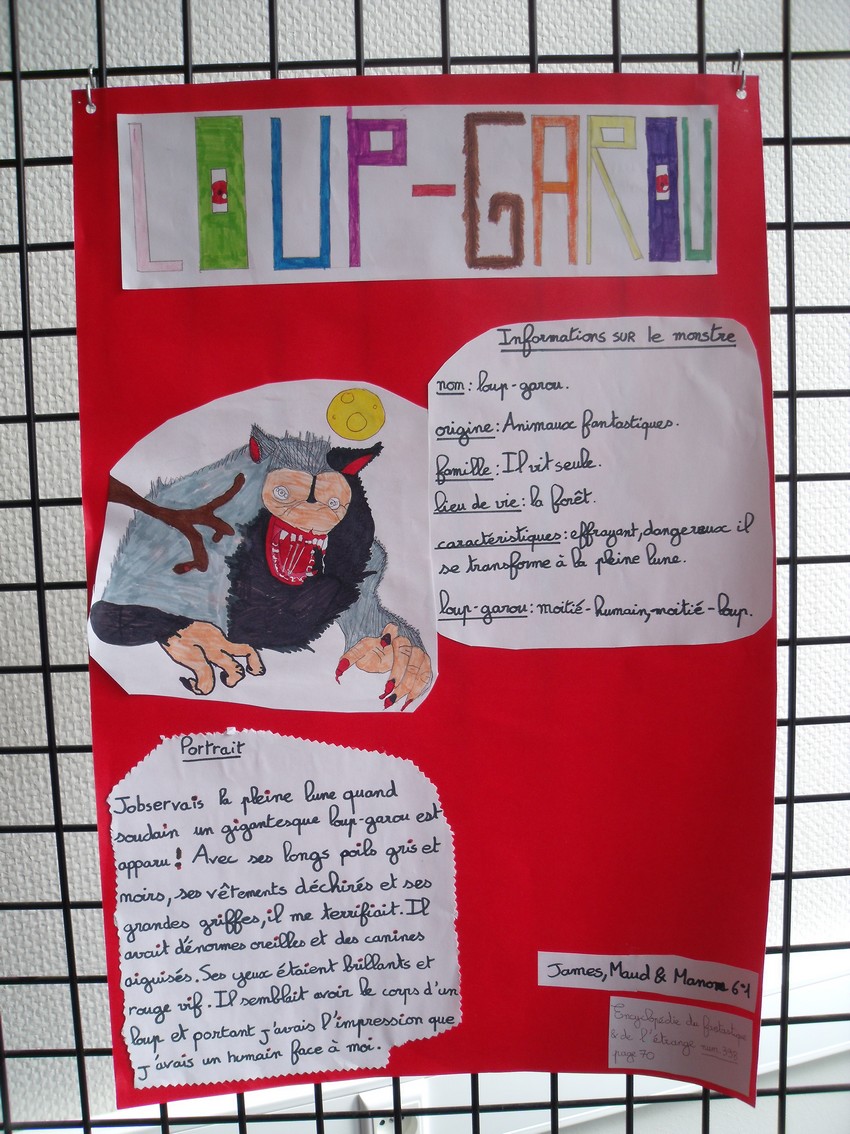 LOUP-GAROU
Informations sur le monstre
nom : loup-garou.
origine : Animaux fantastiques.
famille : Il vit seule.
lieu de vie : la forêt.
caractéristiques : effrayant, dangereux il
se transforme à la pleine lune.
loup-garou : moitié-humain, moitié-loup.
Portrait
J'observais la pleine lune quand
soudain un gigantesque loup-garou est
apparu ! Avec ses longs poils gris et
noirs, ses vêtements déchirés et ses
grandes griffes, il me terrifiait. Il
avait d'énormes oreilles et des canines
aiguisés. Ses yeux étaient brillants et
rouge vif. Il semblait avoir le corps d'un
loup et portant j'avais l'impression que
j'avais un humain face à moi.
James, Maud & Manon 6°1
Encyclopédie du fantastique
& de l'étrange
page 70